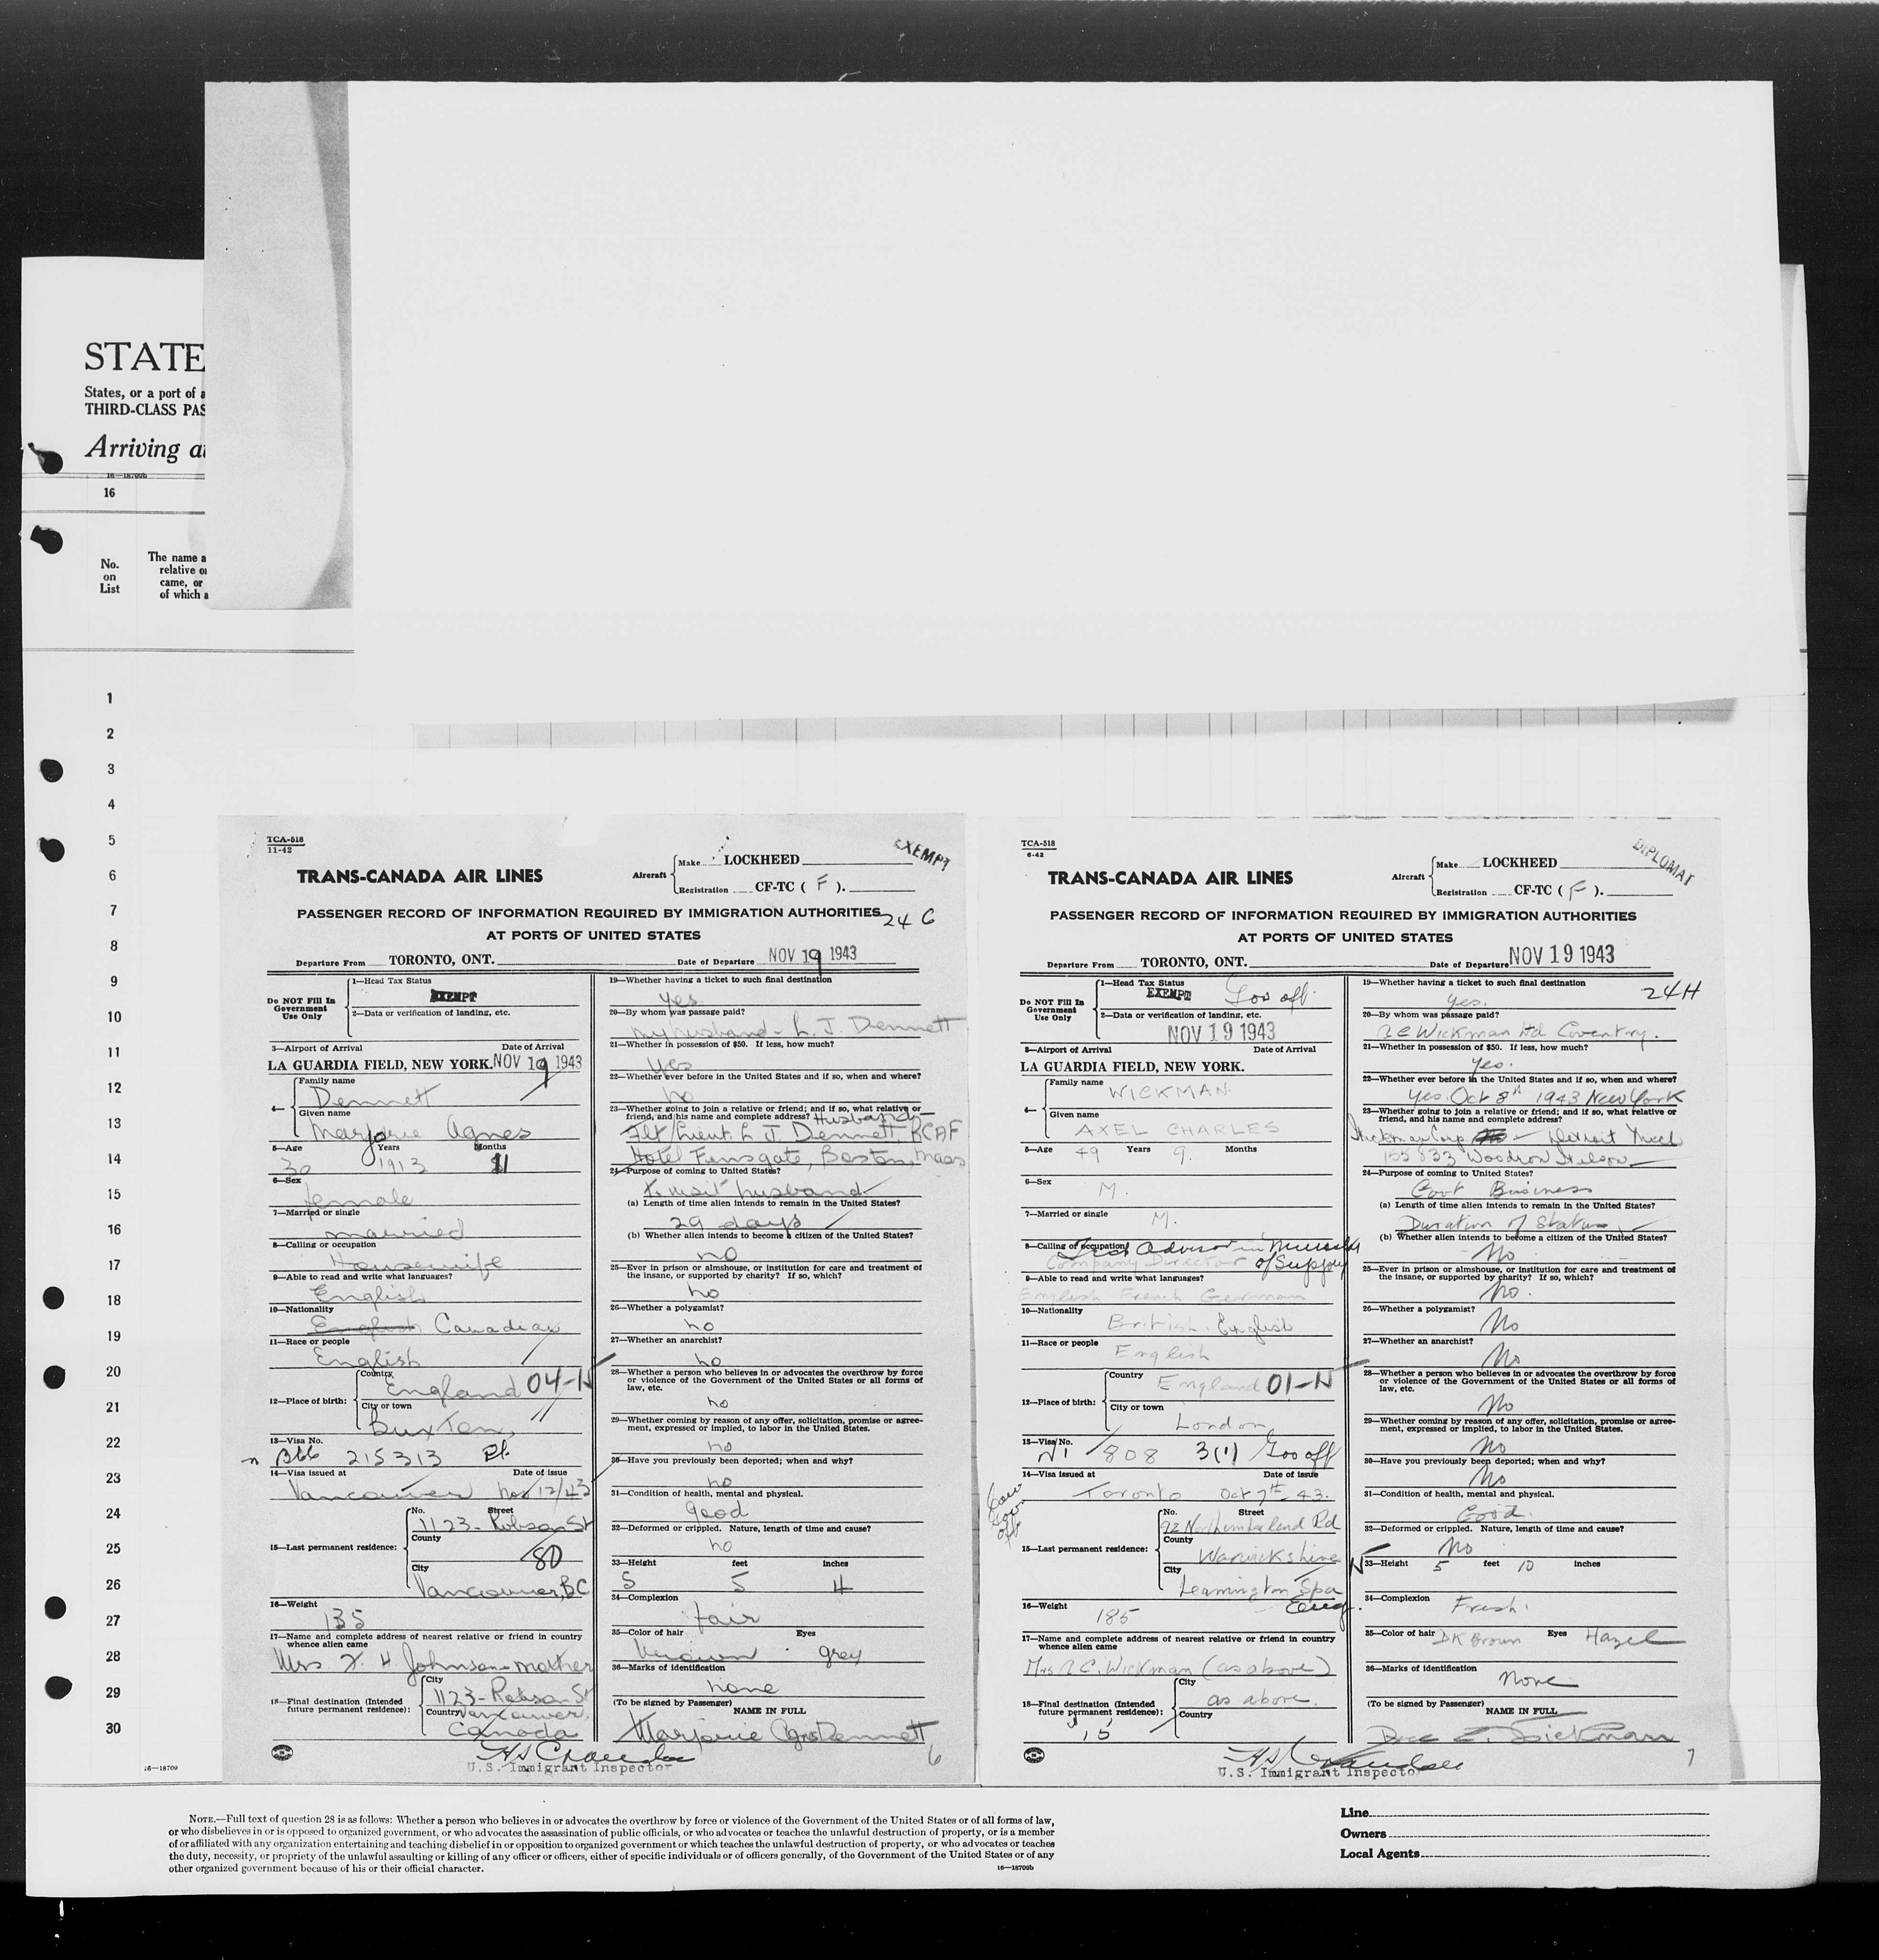 STATE
States, or a port of a
THIRD-CLASS PAS
Arriving a
16—18709b
16
No.
on
List
The name a
relative o
came, or
of which a
1
2
3
4
5
6
7
8
9
10
11
12
13
14
15
16
17
18
19
20
21
22
23
24
25
26
27
28
29
30
16—18709
TCA-518
11-42
EXEMPT
TRANS-CANADA AIR LINES
Aircraft
Make LOCKHEED
Registration CF-TC ( F ).
PASSENGER RECORD OF INFORMATION REQUIRED BY IMMIGRATION AUTHORITIES
24 G
AT PORTS OF UNITED STATES
Departure From TORONTO, ONT. Date of Departure NOV 19 1943
Do NOT Fill In Government Use Only
1—Head Tax Status
EXEMPT
2—Data or verification of landing, etc.
3—Airport of Arrival Date of Arrival
LA GUARDIA FIELD, NEW YORK. NOV 19 1943
4—
Family name
Dennett
Given name
Marjorie Agnes
5—Age Years Months
30 1913 11
6—Sex
female
7—Married or single
married
8—Calling or occupation
Housewife
9—Able to read and write what languages?
English
10—Nationality
English Canadian
11—Race or people
English
12—Place of birth:
Country
England 04-N
City or town
Buxton,
13—Visa No.
B66 215313
14—Visa issued at Date of issue
Vancouver Nov 12/43
15—Last permanent residence:
No. Street
1123- Robson St
County
80
City
Vancouver, BC
16—Weight
135
17—Name and complete address of nearest relative or friend in country
whence alien came
Mrs H Johnson - mother
18—Final destination (Intended
future permanent residence):
City
1123- Robson St
Country Vancouver,
Canada
U.S. Immigrant Inspector
19—Whether having a ticket to such final destination
yes
20—By whom was passage paid?
my husband - L. J. Dennett
21—Whether in possession of $50. If less, how much?
yes
22—Whether ever before in the United States and if so, when and where?
no
23—Whether going to join a relative or friend; and if so, what relative or
friend, and his name and complete address? Husband-
Flt/Lieut. L J. Dennett, RCAF
Hotel Fensgate, Boston, Mass
24—Purpose of coming to United States?
to visit husband
(a) Length of time alien intends to remain in the United States?
29 days
(b) Whether alien intends to become a citizen of the United States?
no
25—Ever in prison or almshouse, or institution for care and treatment of
the insane, or supported by charity? If so, which?
no
26—Whether a polygamist?
no
27—Whether an anarchist?
no
28—Whether a person who believes in or advocates the overthrow by force
or violence of the Government of the United States or all forms of
law, etc.
no
29—Whether coming by reason of any offer, solicitation, promise or agree-
ment, expressed or implied, to labor in the United States.
no
30—Have you previously been deported; when and why?
no
31—Condition of health, mental and physical.
good
32—Deformed or crippled. Nature, length of time and cause?
no
33—Height feet inches
5 5 4
34—Complexion
fair
35—Color of hair Eyes
brown grey
36—Marks of identification
none
(To be signed by Passenger)
NAME IN FULL
Marjorie Agnes Dennett
6
TCA-518
6-42
DIPLOMAT
TRANS-CANADA AIR LINES
Aircraft
Make LOCKHEED
Registration CF-TC ( F ).
PASSENGER RECORD OF INFORMATION REQUIRED BY IMMIGRATION AUTHORITIES
AT PORTS OF UNITED STATES
Departure From TORONTO, ONT. Date of Departure NOV 19 1943
Do NOT Fill In Government Use Only
1—Head Tax Status
EXEMPT Gov off.
2—Data or verification of landing, etc.
NOV 19 1943
3—Airport of Arrival Date of Arrival
LA GUARDIA FIELD, NEW YORK.
4—
Family name
WICKMAN.
Given name
AXEL CHARLES
5—Age 49 Years 9. Months
6—Sex
M.
7—Married or single
M.
8—Calling or occupation
Advisor
Company Director of Supply
9—Able to read and write what languages?
English French German
10—Nationality
British. English
11—Race or people
English
12—Place of birth:
Country
England 01-N
City or town
London
13—Visa No.
808 3(1) Gov off
14—Visa issued at Date of issue
Toronto Oct 7th - 43.
15—Last permanent residence:
No. Street
92 Northumberland Rd
County
Warwickshire
City
Leamington Spa
Eng.
16—Weight
185
17—Name and complete address of nearest relative or friend in country
whence alien came
Mrs A C. Wickman (as above)
18—Final destination (Intended
future permanent residence):
City
as above.
Country
15
U.S. Immigrant Inspector
19—Whether having a ticket to such final destination
yes. 24H
20—By whom was passage paid?
A C Wickman Ltd Coventry.
21—Whether in possession of $50. If less, how much?
yes.
22—Whether ever before in the United States and if so, when and where?
Yes. Oct 8th 1943 New York
23—Whether going to join a relative or friend; and if so, what relative or
friend, and his name and complete address?
Wickman Corp. — Detroit Mich
155833 Woodrow Wilson
24—Purpose of coming to United States?
Govt Business
(a) Length of time alien intends to remain in the United States?
Duration of Status
(b) Whether alien intends to become a citizen of the United States?
No
25—Ever in prison or almshouse, or institution for care and treatment of
the insane, or supported by charity? If so, which?
No.
26—Whether a polygamist?
No
27—Whether an anarchist?
No
28—Whether a person who believes in or advocates the overthrow by force
or violence of the Government of the United States or all forms of
law, etc.
No
29—Whether coming by reason of any offer, solicitation, promise or agree-
ment, expressed or implied, to labor in the United States.
No
30—Have you previously been deported; when and why?
No
31—Condition of health, mental and physical.
Good.
32—Deformed or crippled. Nature, length of time and cause?
No
33—Height 5 feet 10 inches
34—Complexion Fresh.
35—Color of hair DK Brown Eyes Hazel
36—Marks of identification
None
(To be signed by Passenger)
NAME IN FULL
Wickman
7
NOTE.—Full text of question 28 is as follows: Whether a person who believes in or advocates the overthrow by force or violence of the Government of the United States or of all forms of law,
or who disbelieves in or is opposed to organized government, or who advocates the assassination of public officials, or who advocates or teaches the unlawful destruction of property, or is a member
of or affiliated with any organization entertaining and teaching disbelief in or opposition to organized government or which teaches the unlawful destruction of property, or who advocates or teaches
the duty, necessity, or propriety of the unlawful assaulting or killing of any officer or officers, either of specific individuals or of officers generally, of the Government of the United States or of any
other organized government because of his or their official character.
16—18709b
Line
Owners
Local Agents